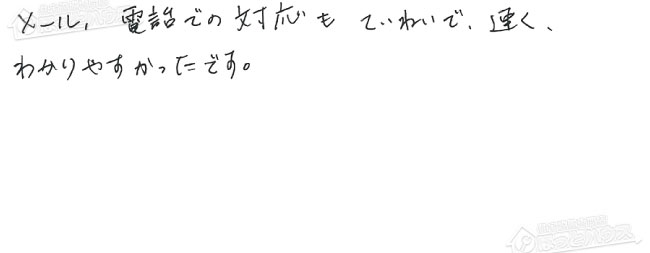 メール、電話での対応も ていねいで、速く、
わかりやすかったです。